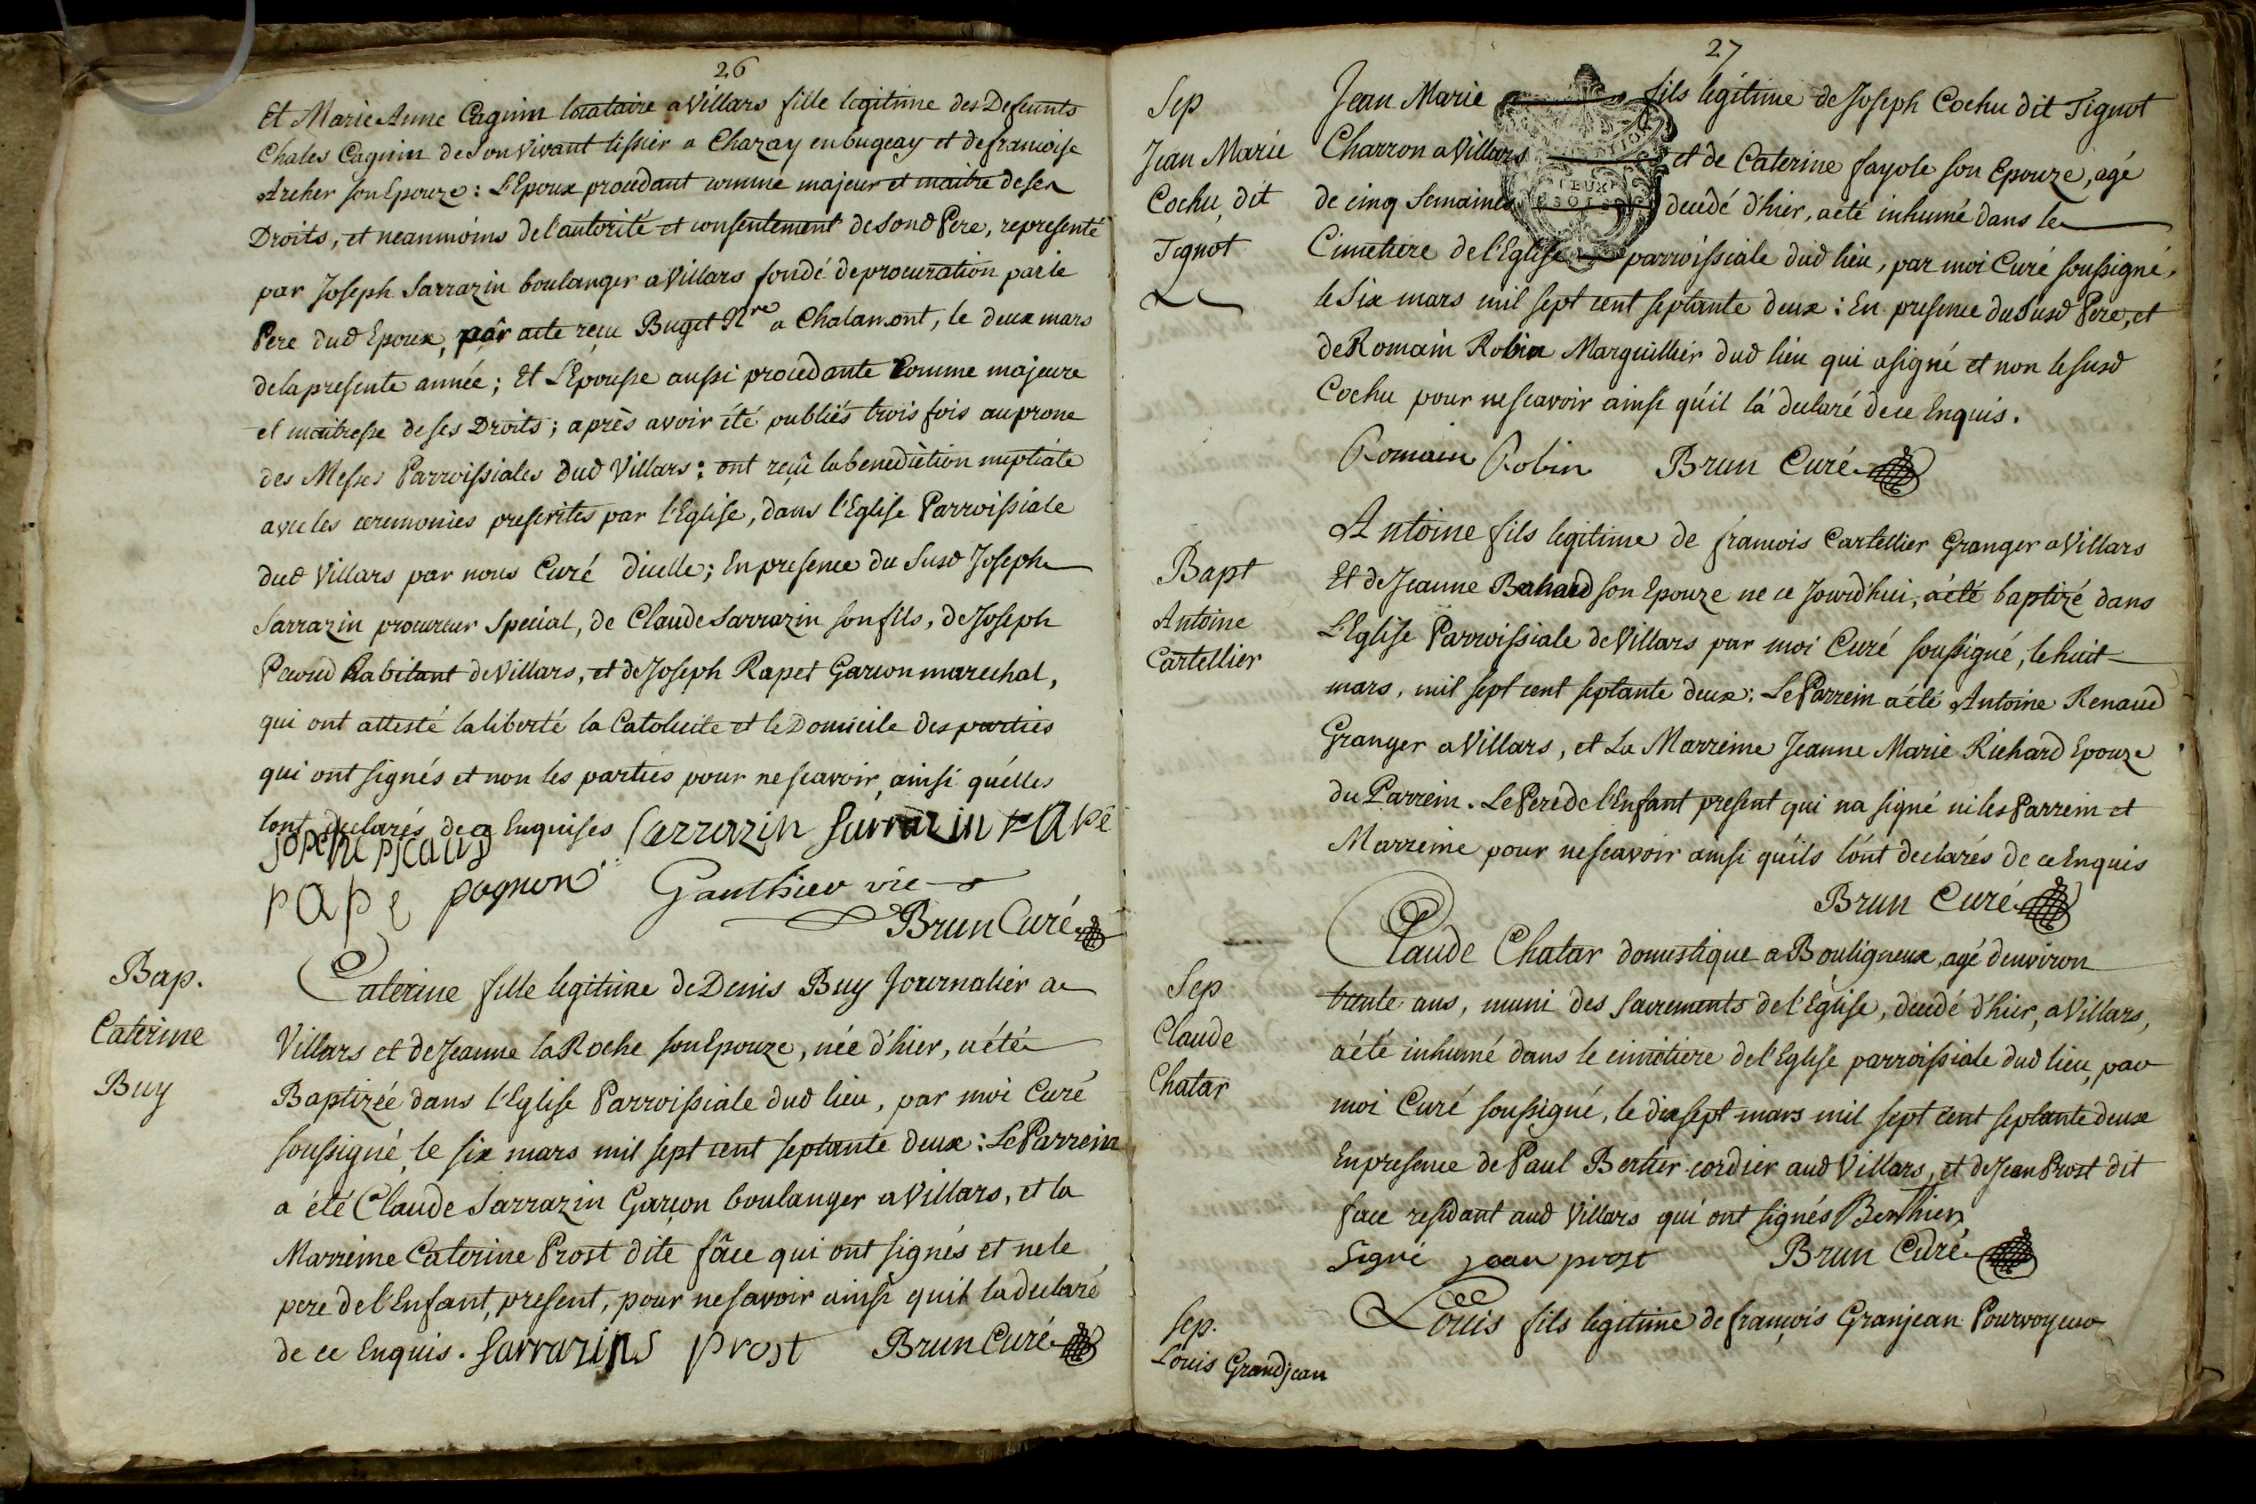 26
Et Marie Anne Cagnin locataire a Villars fille legitime des Defeunts
Chales Cagnin de son vivant tissier a Chazay en bugeay et de francoise
Archer son Epouze : L'Epoux procedant comme majeur et maitre de ses
Droits, et neanmoins de l'autorité et consentement de sond Pere, representé
par Joseph Sarrazin boulanger a Villars fondé de procuration par le
Pere dud Epoux, par acte reçu Buget Nre a Chalamont, le deux mars
de la presente année ; Et L'Epousse aussi procedante Comme majeure
et maitresse de ses Droits ; après avoir été publiés trois fois au prone
des Messes Parroissiales dud Villars : ont reçû la benediction nuptiale
avec les ceremonies prescrites par l'Eglise, dans l'Eglise Parroissiale
dud Villars par nous Curé d'icelle ; En presence du Susd Joseph
Sarrazin procureur Special, de Claude Sarrazin son fils, de Joseph
habitant de Villars, et de Joseph Rapet Garcon marechal,
qui ont attesté la liberté la Catolicite et le Domicile des parties
qui ont signés et non les parties pour ne scavoir, ainsi qu'elles
lont declarés de ce Enquises Sarrazin Sarrazin rape
pape pognon Gauthier vic
Brun Curé
Bap.
Caterine
Buy
Caterine fille legitime de Denis Buy Journalier a
Villars et de Jeanne la Roche son Epouze, née d'hier, a été
Baptizée dans l'Eglise Parroissiale dud lieu, par moi Curé
soussigné, le six mars mil sept cent septante deux : Le Parrein
a été Claude Sarrazin Garcon boulanger a Villars, et la
Marreine Caterine Prost dite fâce qui ont signés et ne le
pere de l'Enfant, present, pour ne savoir ainsi quil la declaré
de ce Enquis. Sarrazins prost Brun Curé
27
Sep
Jean Marie
Cochu, dit
Tignot
Jean Marie fils légitime de Joseph Cochu dit Tignot
Charron a Villars et de Caterine fayole son Epouze, agé
de cinq Semaines decedé d'hier, a eté inhumé dans le
Cimetiere de l'Eglise parroissiale dud lieu, par moi Curé soussigné,
le Six mars mil sept cent septante deux : En presence du Susd Pere, et
de Romain Robin Marguillier dud lieu qui a signé et non le susd
Cochu pour ne scavoir ainsi qu'il lá declaré de ce Enquis.
Romain Robin Brun Curé
Bapt
Antoine
Cartellier
Antoine fils legitime de francois Cartellier Granger a Villars
Et de Jeanne son Epouze ne ce Jourd'hui, a été baptizé dans
L'Eglise Parroissiale de Villars par moi Curé soussigné, le huit
mars, mil sept cent septante deux : Le Parrein a été Antoine Renaud
Granger a Villars, et La Marreine Jeanne Marie Richard Epouze
du Parrein. Le Pere de l'Enfant present qui na signé ni les Parrein et
Marreine pour ne scavoir ainsi quils l'ont declarés de ce Enquis
Brun Curé
Sep
Claude
Chatar
Claude Chatar domestique a Bouligneux, agé d'environ
trente ans, muni des Sacrements de l'Eglise, decedé d'hier, a Villars,
a été inhumé dans le cimetiere de l'Eglise parroissiale dud lieu, par
moi Curé soussigné, le dixsept mars mil sept cent septante deux
En presence de Paul Bertier cordier aud Villars, et de Jean Prost dit
face residant aud Villars qui ont signés Berthier
Signé jean prost Brun Curé
Sep.
Louis Grandjean
Louis fils legitime de françois Granjean Pourvoyeur